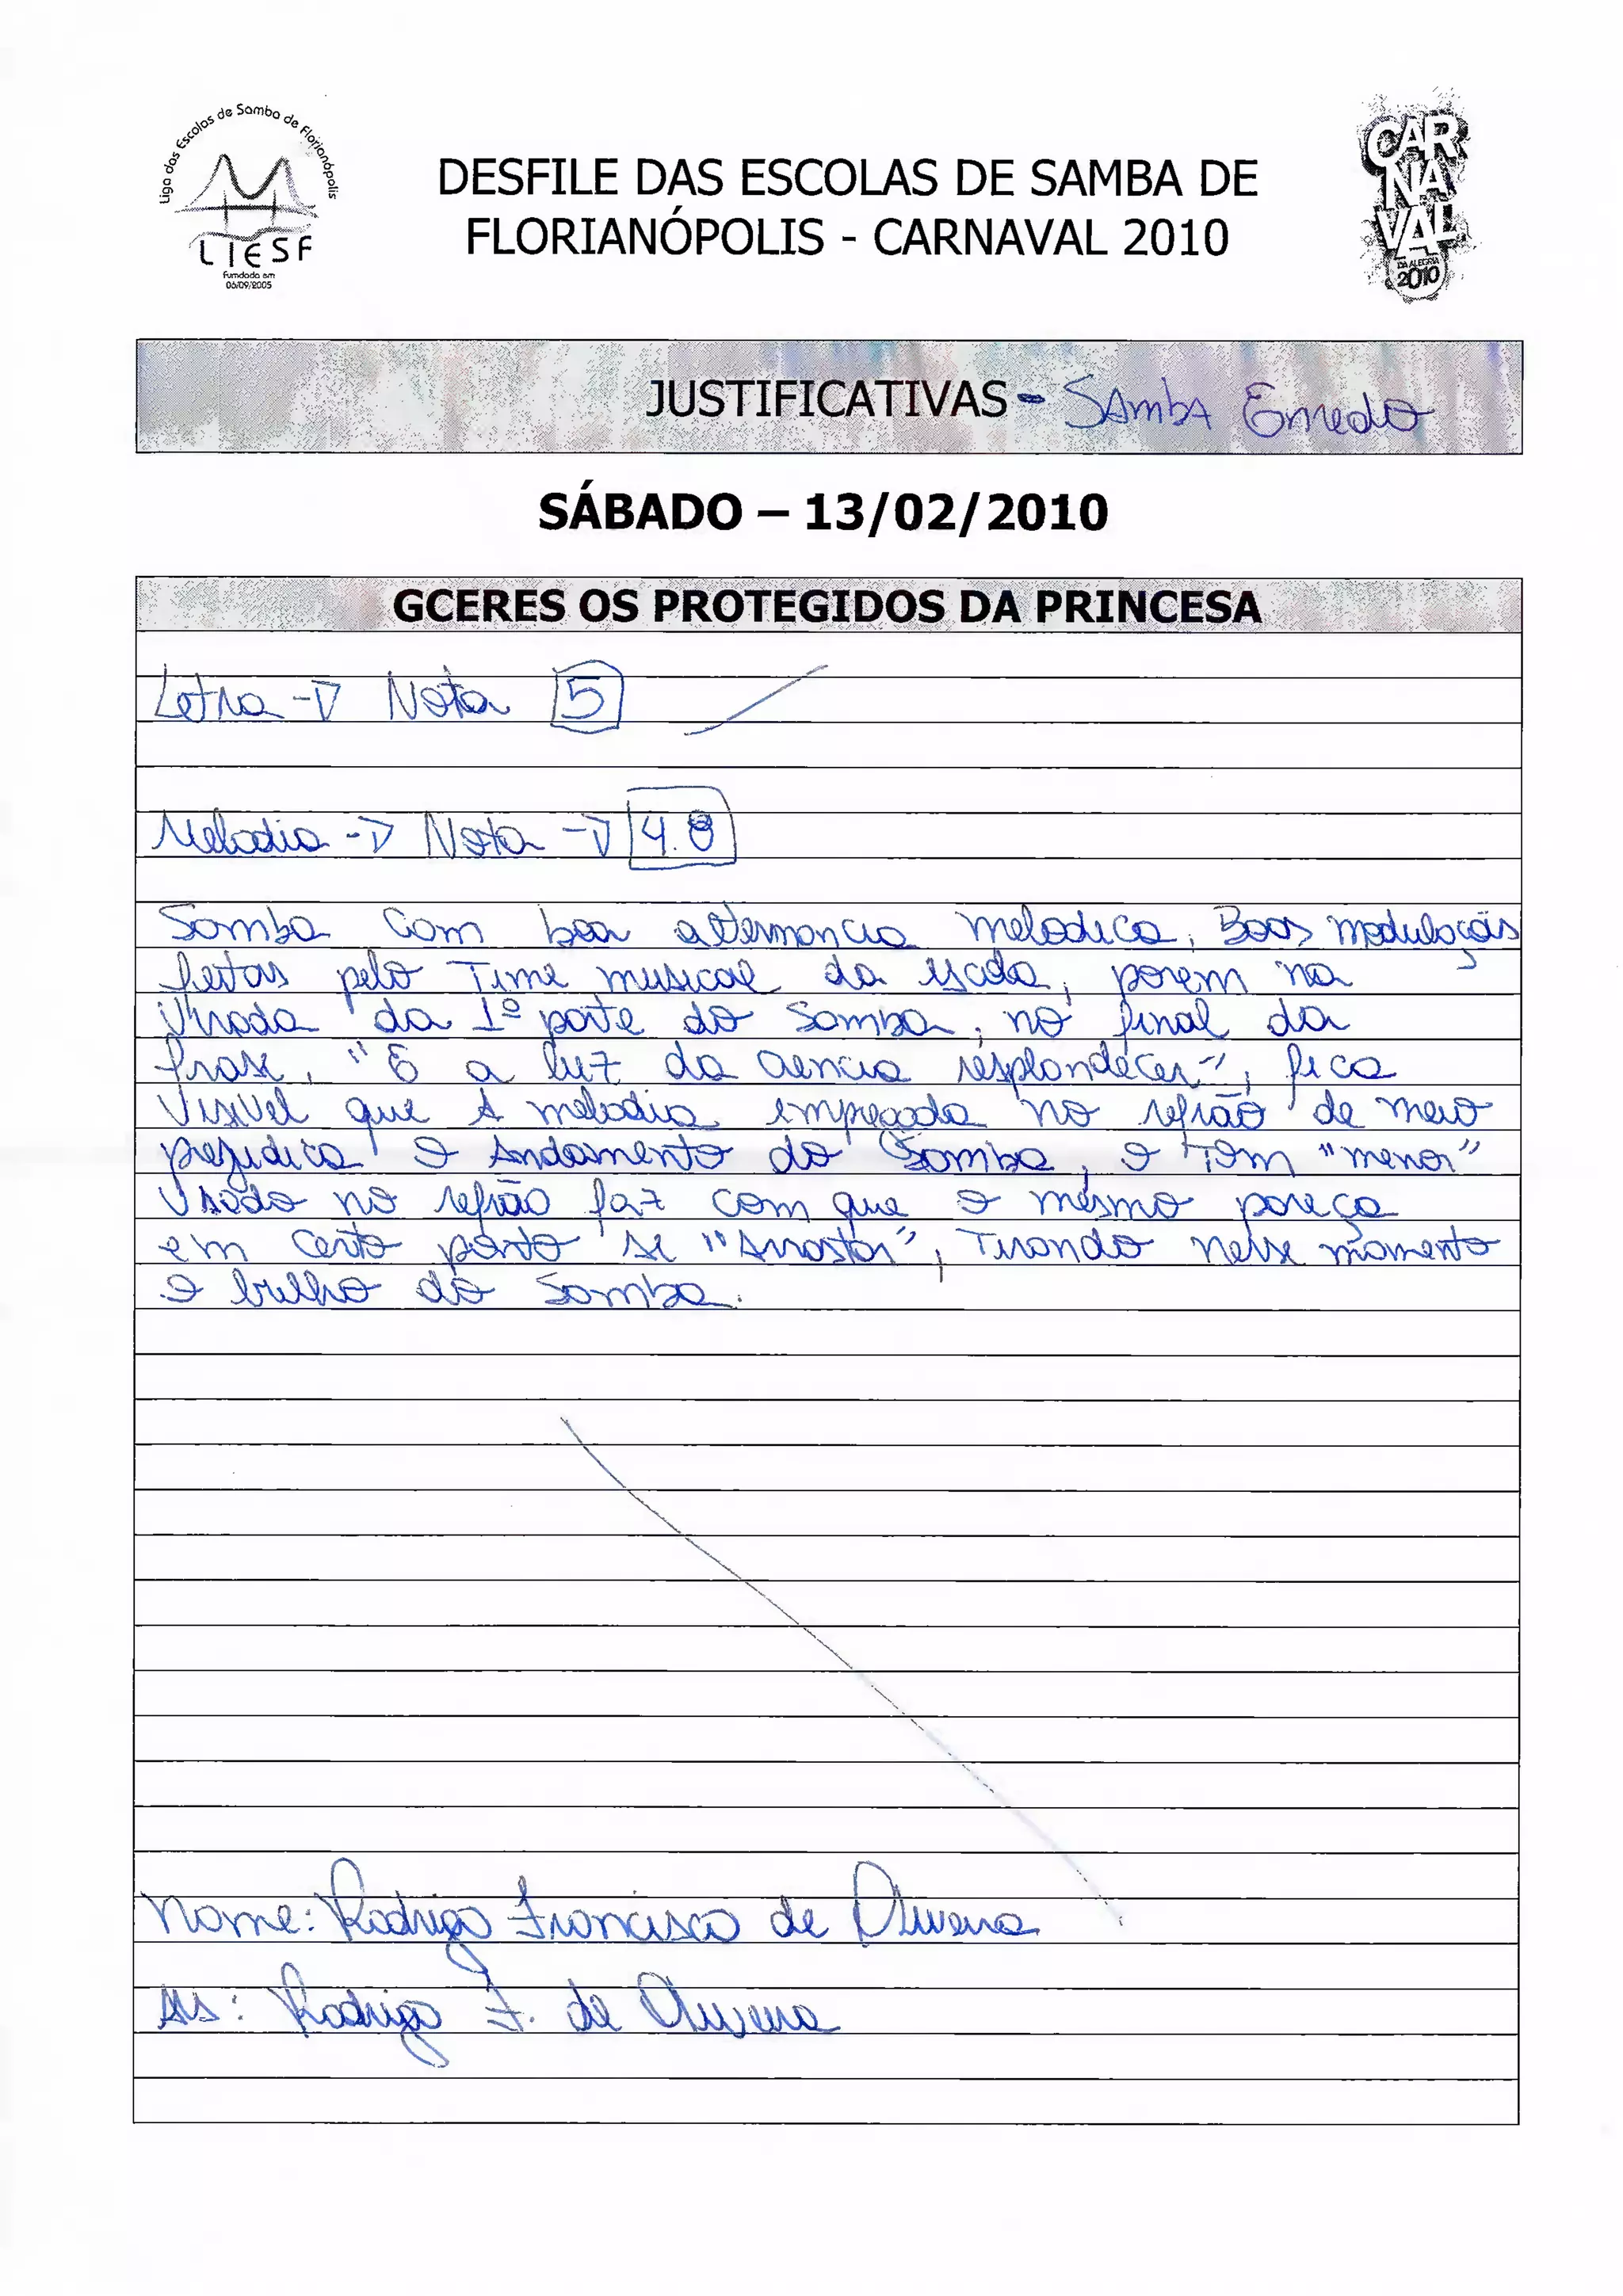 Liga das Escolas de Samba de Florianópolis
LIESF
Fundada em
06/09/2005
DESFILE DAS ESCOLAS DE SAMBA DE
FLORIANÓPOLIS - CARNAVAL 2010
CAR
NA
VAL
DA ALEGRIA
2010
JUSTIFICATIVAS - SAmbA Enredo
SÁBADO – 13/02/2010
GCERES OS PROTEGIDOS DA PRINCESA
Letra -> Nota 5
Melodia -> Nota -> 4.8
Samba com boa alternancia melodica, Boas modulações
feitas pelo Time musical da escola, porem na
virada da 1º parte do Samba, no final da
frase, "E a luz da ciencia resplandecer", fica
Visivel que A melodia empregada no refrão de meio
prejudica o Andamento do Samba, o Tom "menor"
Usado no refrão faz com que o mesmo pareça
em certo ponto se "Arrastar", Tirando nesse momento
o brilho do Samba.
Nome: Rodrigo Francisco de Oliveira
Ass: Rodrigo F. de Oliveira